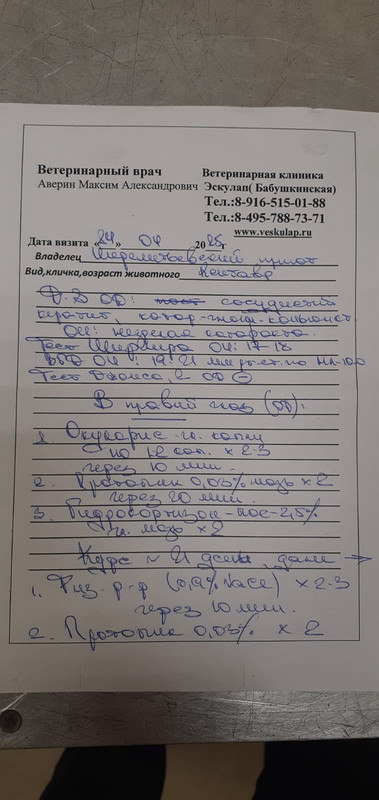 Ветеринарный врач
Аверин Максим Александрович
Ветеринарная клиника
Эскулап( Бабушкинская)
Тел.:8-916-515-01-88
Тел.:8-495-788-73-71
www.veskulap.ru
Дата визита «24» 04 2025г
Владелец Шереметьевский приют
Вид,кличка,возраст животного Кентавр
Д-з OD: сосудистый
кератит, катар-гнойн-конъюнкт.
OU: незрелая катаракта.
Тест Ширмера OU: 17-18
ВГД OU: 19-21 мм рт.ст. по
Тест Джонса, 2 OD ⊖
В правый глаз (OD):
1. Окуларис гл. капли
по 1-2 кап. x 2-3
через 10 мин.
2. Протопик 0,03% мазь x 2
через 20 мин.
3. Гидрокортизон-пос-2,5%
гл. мазь x2
Курс ~ 21 день, далее →
1. Физ. р-р (0,9% NaCl) x 2-3
через 10 мин.
2. Протопик 0,03% x 2